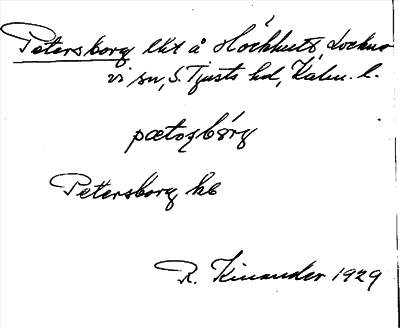 Petersborg lht å Hökhult Lockne
vi sn, S. Tjusts hd, Kalm. l.
pætɔʂbórg
Petersborg kb
R. Kinander 1929